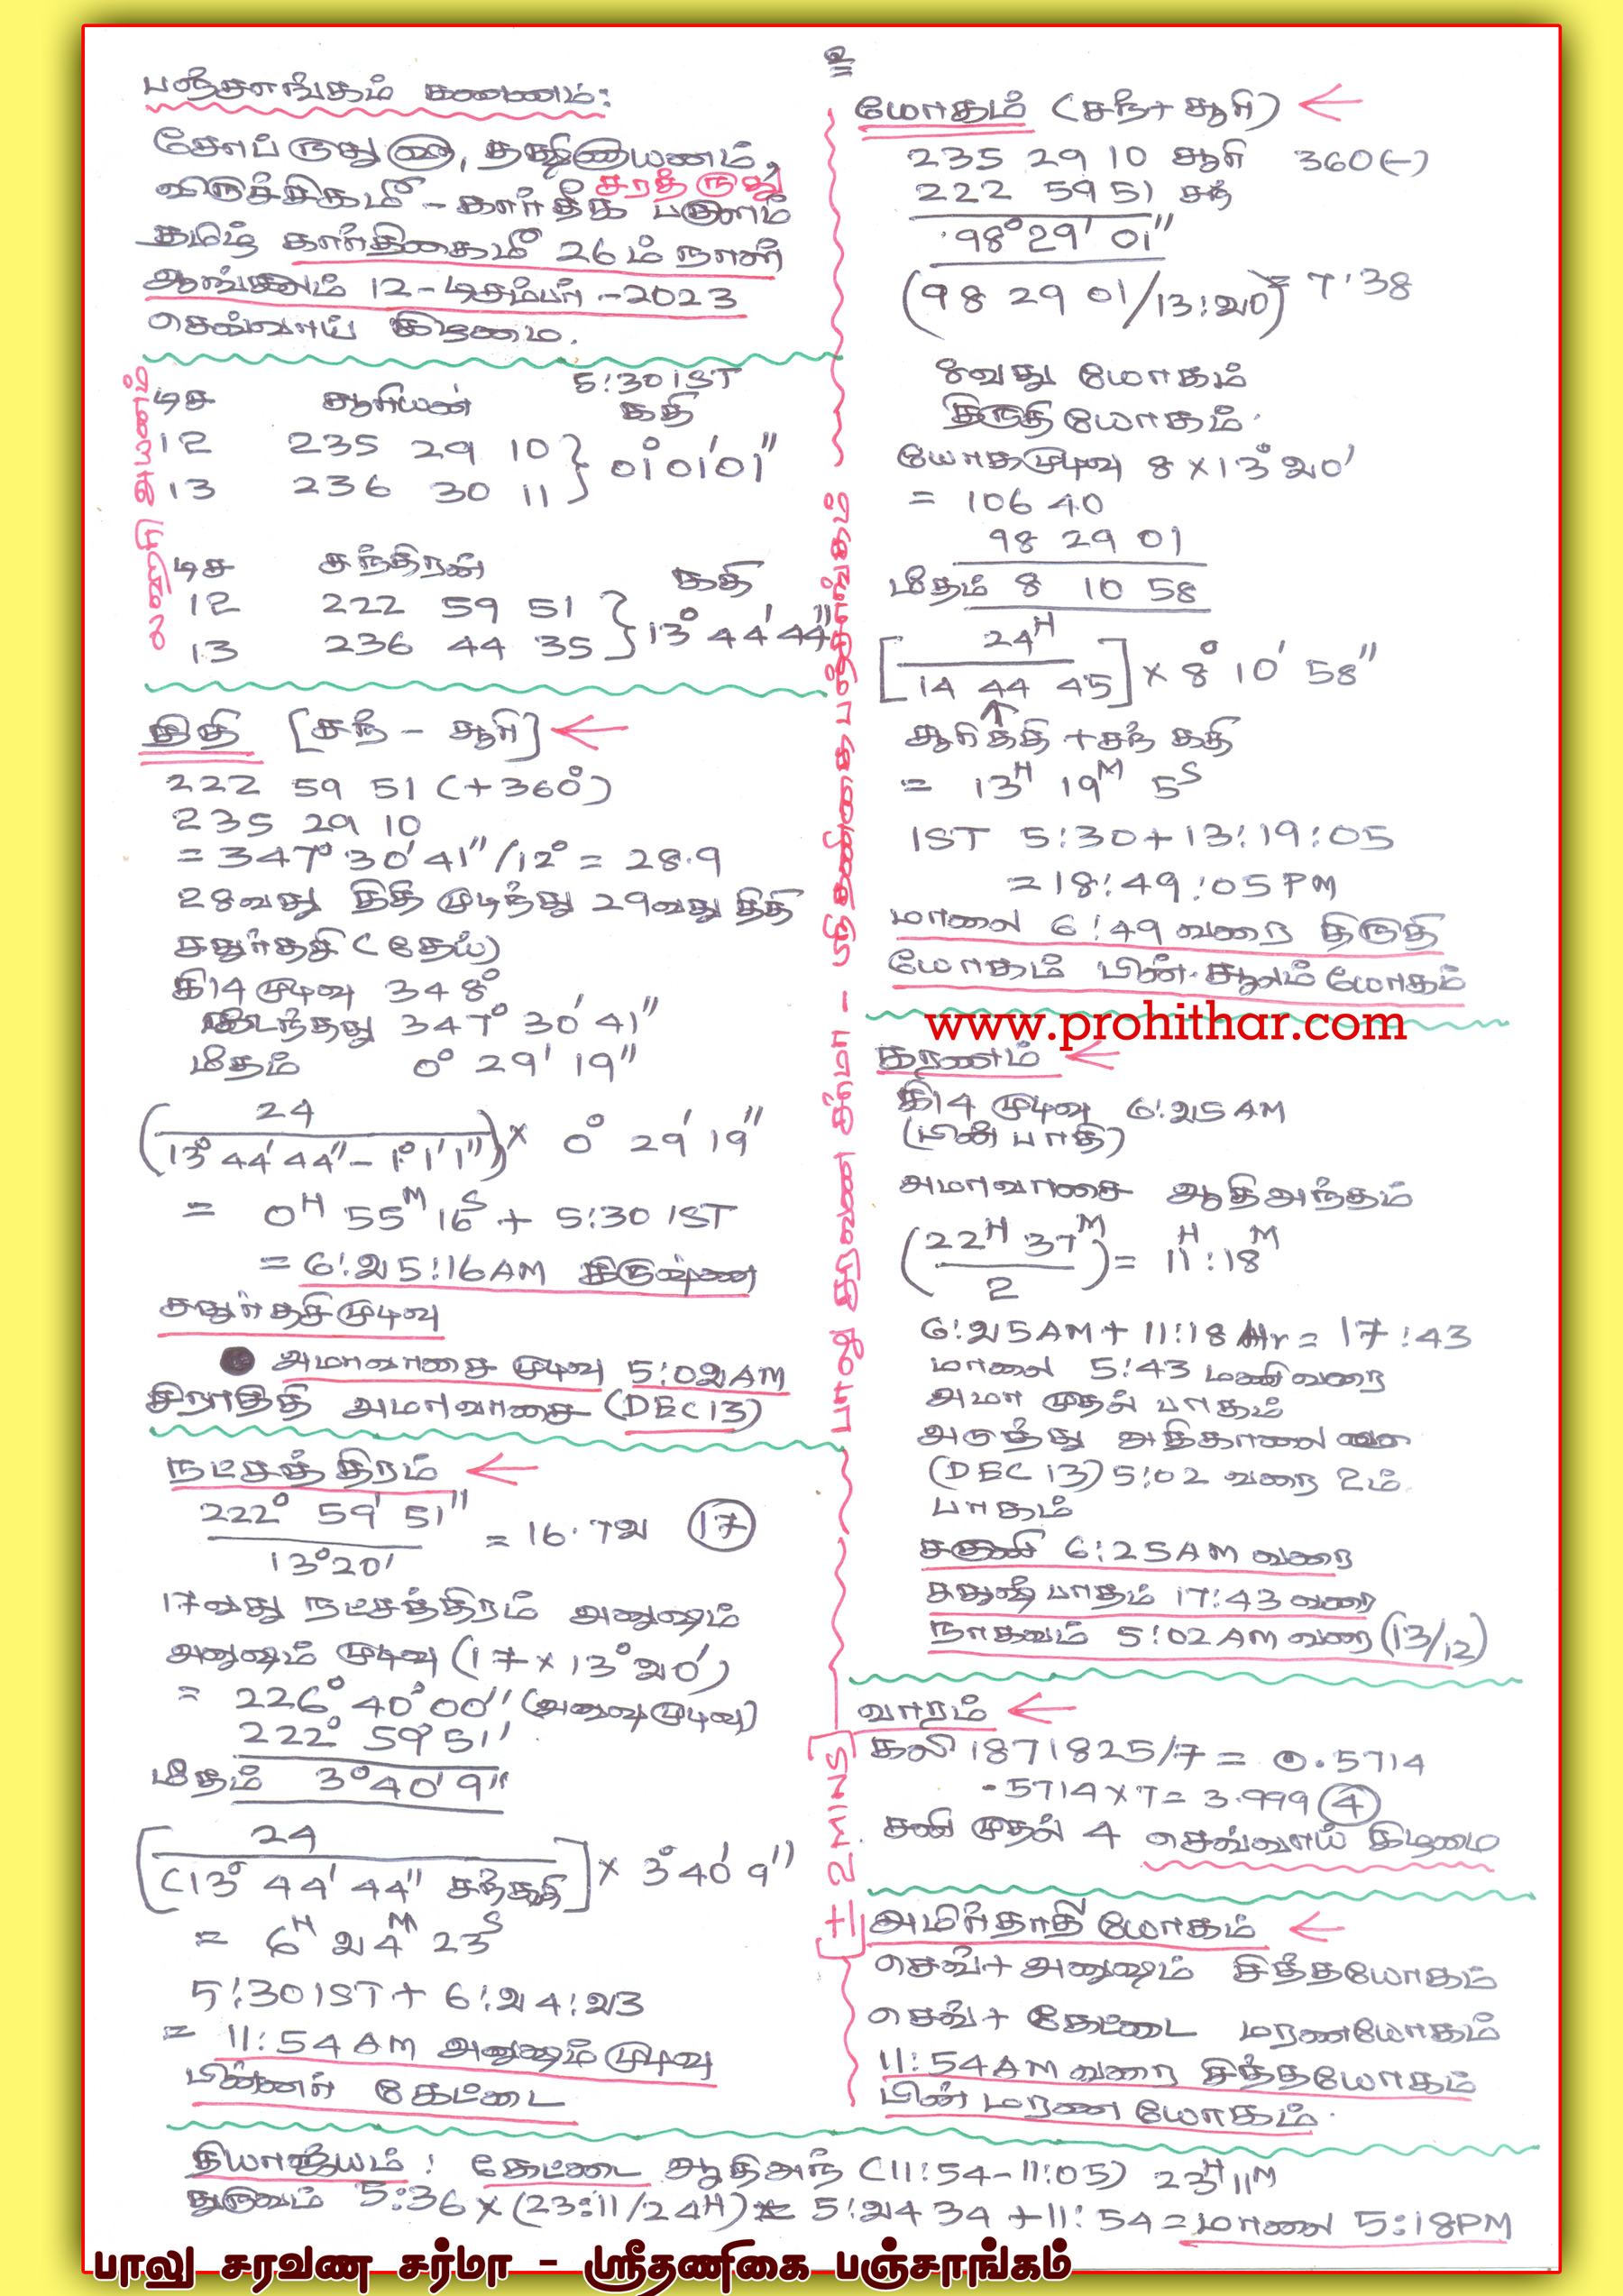 உ
பஞ்சாங்கம் கணணம்:
சோப்ருது, தக்ஷிணாயணம்,
சரத் ருது
விருச்சிகமீ - கார்த்தீக பகுளம்
தமிழ் கார்திகைமீ 26ம் நாள்
ஆங்கிலம் 12-டிசம்பர்-2023
செவ்வாய் கிழமை.
லஹரி அயனம்
5:30 IST
டிச சூரியன் கதி
12 235 29 10 } 01° 01' 01"
13 236 30 11
டிச சந்திரன் கதி
12 222 59 51 } 13° 44' 44"
13 236 44 35
திதி [சந் - சூரி]
222 59 51 (+360°)
235 29 10
= 347° 30' 41" / 12° = 28.9
28வது திதி முடிந்து 29வது திதி
சதுர்தசி (தேய்)
கி14 முடிவு 348°
கடந்தது 347° 30' 41"
மீதம் 0° 29' 19"
(24 / 13° 44' 44" - 1° 1' 1") × 0° 29' 19"
= 0H 55M 16S + 5:30 IST
= 6:25:16AM கிருஷ்ண
சதுர்தசி முடிவு
அமாவாசை முடிவு 5:02AM
சிராததி அமாவாசை (DEC 13)
நட்சத்திரம்
222° 59' 51" / 13° 20' = 16.72 (17)
17வது நட்சத்திரம் அனுஷம்
அனுஷம் முடிவு (17 × 13° 20')
= 226° 40' 00" (அனுஷமுடிவு)
222° 59' 51"
மீதம் 3° 40' 9"
[24 / (13° 44' 44" சந்கதி] × 3° 40' 9"
= 6H 24M 23S
5:30 IST + 6:24:23
= 11:54AM அனுஷம் முடிவு
பின்னர் கேட்டை
பாலு சரவண சர்மா - ஸ்ரீதணிகை பஞ்சாங்கம்
[± 2 MINS]
யோகம் (சந் + சூரி)
235 29 10 சூரி 360(-)
222 59 51 சந்
98° 29' 01"
(98 29 01 / 13:20) = 7.38
8வது யோகம்
திருதி யோகம்.
யோகமுடிவு 8 × 13° 20'
= 106 40
98 29 01
மீதம் 8 10 58
[24H / 14 44 45] × 8° 10' 58"
சூரி கதி + சந் கதி
= 13H 19M 5S
IST 5:30 + 13:19:05
= 18:49:05 PM
மாலை 6:49 வரை திருதி
யோகம் பின் சூலம் யோகம்
www.prohithar.com
கரணம்
கி14 முடிவு 6:25AM
(பின் பாதி)
அமாவாசை ஆதிஅந்தம்
(22H 37M / 2) = 11H:18M
6:25AM + 11:18 Hr = 17:43
மாலை 5:43 மணிவரை
அமா முதல் பாதம்
அடுத்து அதிகாலை
(DEC 13) 5:02 வரை 2ம்
பாதம்
சகுணி 6:25AM வரை
சதுஷ் பாதம் 17:43 வரை
நாகவம் 5:02AM வரை (13/12)
வாரம்
கலி 1871825/7 = 0.5714
.5714 × 7 = 3.999 (4)
சனி முதல் 4 செவ்வாய் கிழமை
அமிர்தாதி யோகம்
செவ் + அனுஷம் சித்தயோகம்
செவ் + கேட்டை மரணயோகம்
11:54AM வரை சித்தயோகம்
பின் மரண யோகம்.
தியாஜ்யம்: கேட்டை ஆதிஅந் (11:54-11:05) 23H 11M
துருவம் 5:36 × (23:11/24H) = 5:24 34 + 11:54 = மாலை 5:18PM
பாலு சரவண சர்மா - ஸ்ரீதணிகை பஞ்சாங்கம்